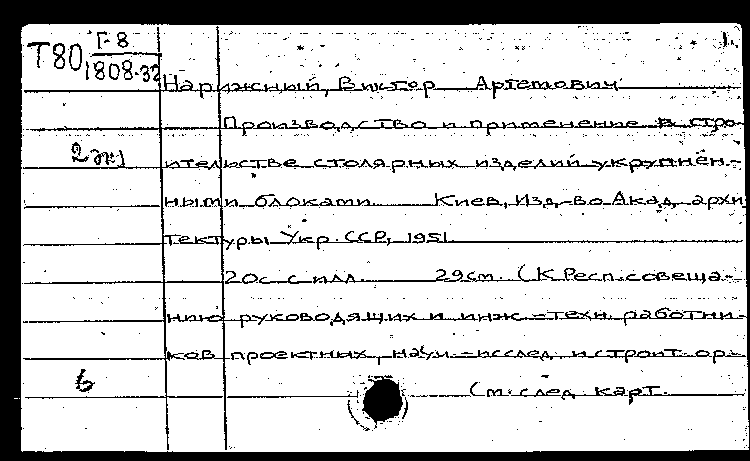 1.
Т80 Г-8
1808-32
Нарижный, Виктор Артемович
Производство и применение в стро-
2 экз
ительстве столярных изделий укрупнён-
ными блоками. Киев, Изд-во Акад. архи
тектуры Укр. ССР, 1951.
20с с илл. 29см. (К Респ. совеща-
нию руководящих и инж.-техн. работни-
ков проектных, науч.-исслед. и строит. ор-
6
См. след. карт.